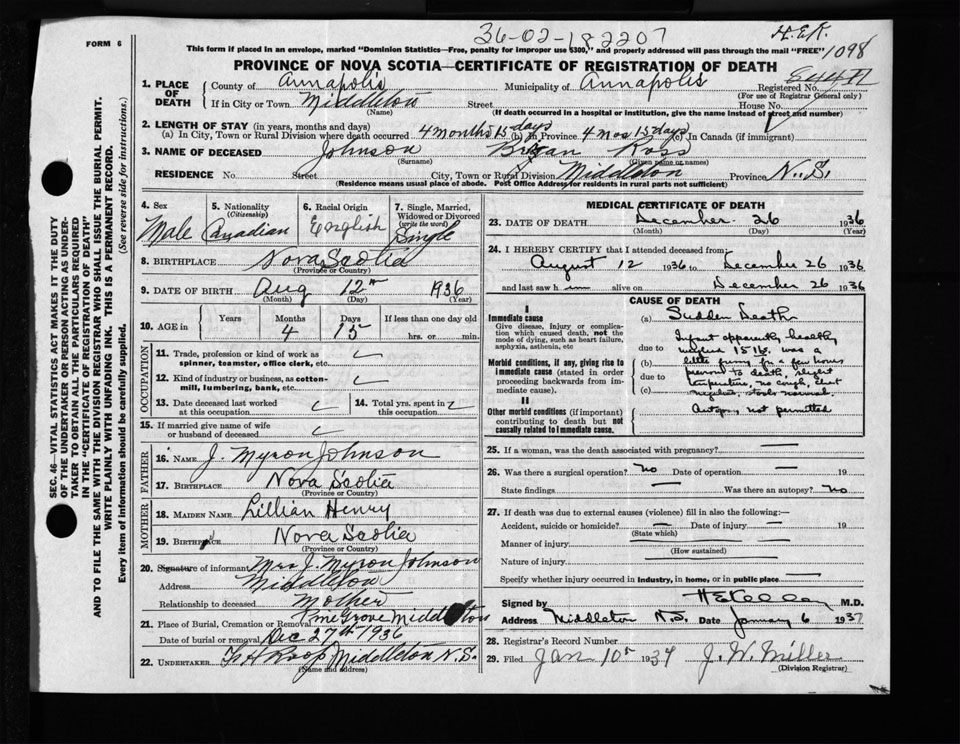 36-02-182207
H.E.K.
FORM 6
This form if placed in an envelope, marked "Dominion Statistics—Free, penalty for improper use $300," and properly addressed will pass through the mail "FREE"
1098
PROVINCE OF NOVA SCOTIA—CERTIFICATE OF REGISTRATION OF DEATH
1. PLACE OF DEATH County of Annapolis Municipality of Annapolis Registered No.
(For use of Registrar General only)
If in City or Town Middleton Street House No.
(Name) (If death occurred in a hospital or institution, give the name instead of street and number)
2. LENGTH OF STAY (in years, months and days)
(a) In City, Town or Rural Division where death occurred 4 months 15 days (b) In Province 4 mos 15 days (c) In Canada (if immigrant)
3. NAME OF DECEASED Johnson Brian Ross
(Surname) (Given name or names)
RESIDENCE No. Street City, Town or Rural Division Middleton Province N.S.
(Residence means usual place of abode. Post Office Address for residents in rural parts not sufficient)
SEC. 46—VITAL STATISTICS ACT MAKES IT THE DUTY
OF THE UNDERTAKER OR PERSON ACTING AS UNDER-
TAKER TO OBTAIN ALL THE PARTICULARS REQUIRED
IN THE "CERTIFICATE OF REGISTRATION OF DEATH"
AND TO FILE THE SAME WITH THE DIVISION REGISTRAR WHO SHALL ISSUE THE BURIAL PERMIT.
WRITE PLAINLY WITH UNFADING INK. THIS IS A PERMANENT RECORD.
Every item of information should be carefully supplied. (See reverse side for instructions.)
4. Sex 5. Nationality (Citizenship) 6. Racial Origin 7. Single, Married, Widowed or Divorced (write the word)
Male Canadian English Single
8. BIRTHPLACE Nova Scotia
(Province or Country)
9. DATE OF BIRTH Aug 12th 1936
(Month) (Day) (Year)
10. AGE in Years Months Days If less than one day old
4 15 hrs. or min.
OCCUPATION
11. Trade, profession or kind of work as spinner, teamster, office clerk, etc.
12. Kind of industry or business, as cotton-mill, lumbering, bank, etc.
13. Date deceased last worked at this occupation
14. Total yrs. spent in this occupation
15. If married give name of wife or husband of deceased
FATHER
16. NAME J. Myron Johnson
17. BIRTHPLACE Nova Scotia
(Province or Country)
MOTHER
18. MAIDEN NAME Lillian Henry
19. BIRTHPLACE Nova Scotia
(Province or Country)
20. Signature of informant Mrs J. Myron Johnson
Address Middleton
Relationship to deceased Mother
21. Place of Burial, Cremation or Removal Pine Grove Middleton
Date of burial or removal Dec 27th 1936
22. UNDERTAKER Roop Middleton N.S.
(Name and address)
MEDICAL CERTIFICATE OF DEATH
23. DATE OF DEATH December 26 1936
(Month) (Day) (Year)
24. I HEREBY CERTIFY that I attended deceased from:
August 12 1936 to December 26 1936
and last saw h im alive on December 26 1936
CAUSE OF DEATH
I
Immediate cause
Give disease, injury or complication which caused death, not the mode of dying, such as heart failure, asphyxia, asthenia, etc
Morbid conditions, if any, giving rise to immediate cause (stated in order proceeding backwards from immediate cause).
II
Other morbid conditions (if important) contributing to death but not causally related to immediate cause.
(a) Sudden Death
due to Infant apparently healthy
(b) weighed 15 lb. was a
little fussy for a few hours
due to previous to death, slight
(c) temperature, no cough, chest
negative, stools normal
Autopsy not permitted
25. If a woman, was the death associated with pregnancy?
26. Was there a surgical operation? No Date of operation 19
State findings Was there an autopsy? No
27. If death was due to external causes (violence) fill in also the following:—
Accident, suicide or homicide? Date of injury 19
(State which)
Manner of injury
(How sustained)
Nature of injury
Specify whether injury occurred in industry, in home, or in public place
Signed by M.D.
Address Middleton N.S. Date January 6 1937
28. Registrar's Record Number
29. Filed Jan 10th 1937 J. W. Miller
(Division Registrar)